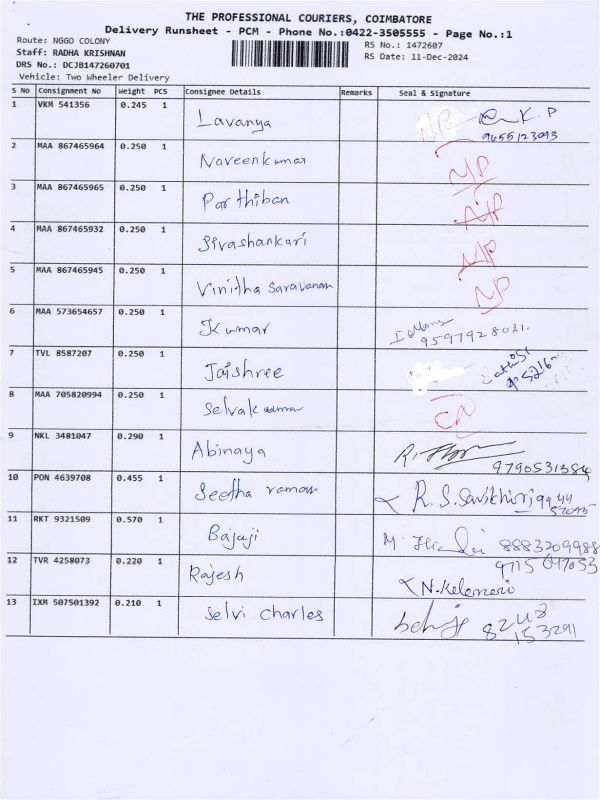 THE PROFESSIONAL COURIERS, COIMBATORE
Delivery Runsheet - PCM - Phone No.:0422-3505555 - Page No.:1
Route: NGGO COLONY RS No.: 1472607
Staff: RADHA KRISHNAN RS Date: 11-Dec-2024
DRS No.: DCJB147260701
Vehicle: Two Wheeler Delivery
S No Consignment No Weight PCS Consignee Details Remarks Seal & Signature
1 VKM 541356 0.245 1 Lavanya K.P
9655123093
2 MAA 867465964 0.250 1 Naveenkumar NP
3 MAA 867465965 0.250 1 Parthiban NP
4 MAA 867465932 0.250 1 Sivashankari NP
5 MAA 867465945 0.250 1 Vinitha Saravanan NP
6 MAA 573654657 0.250 1 Kumar
9597928021.
7 TVL 8587207 0.250 1 Jaishree
8 MAA 705820994 0.250 1 Selvakumar CN
9 NKL 3481047 0.290 1 Abinaya
9790531384
10 PON 4639708 0.455 1 Seetha raman R.S.
11 RKT 9321509 0.570 1 Bajuji M 8883209988
12 TVR 4258073 0.220 1 Rajesh 9715047053
N.Kelemeri
13 IXM 507501392 0.210 1 Selvi Charles
153291